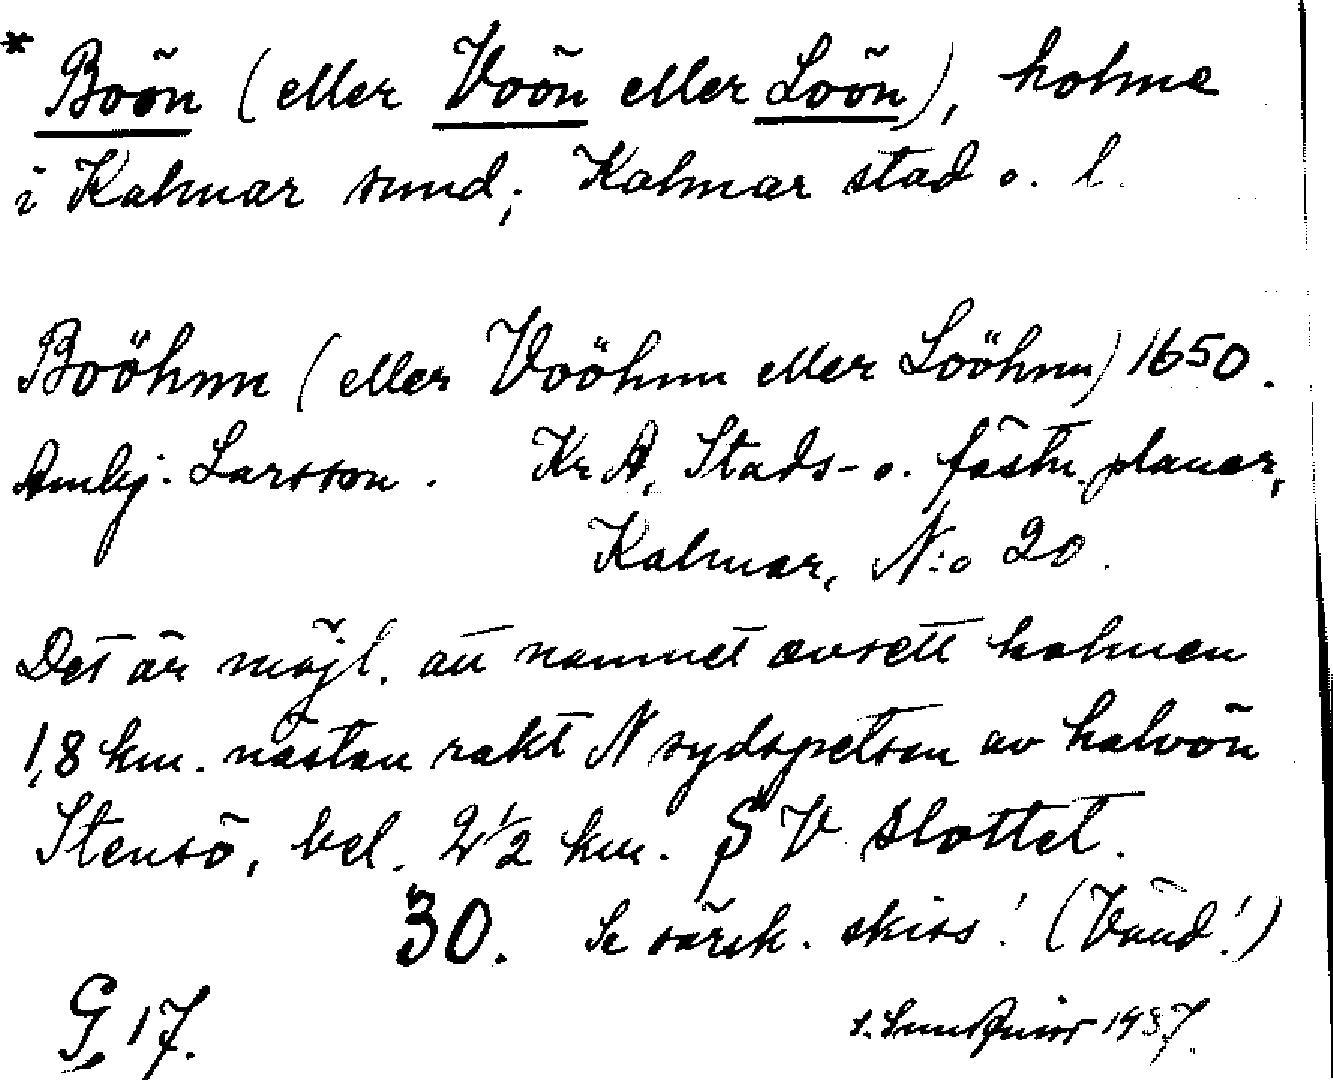 * Boön (eller Voön eller Loön), holme
i Kalmar sund; Kalmar stad o. l.
Boöhnn (eller Voöhnn eller Loöhnn) 1650.
Larsson. Kr A, Stads- o. fästn. planer,
Kalmar, N:o 20.
Det är möjl. att namnet avsett holmen
1,8 km. nästan rakt N sydspetsen av halvön
Stensö, bel. 2 1/2 km. SV slottet.
30. Se särsk. skiss! (Vänd!)
G 17. 1937.